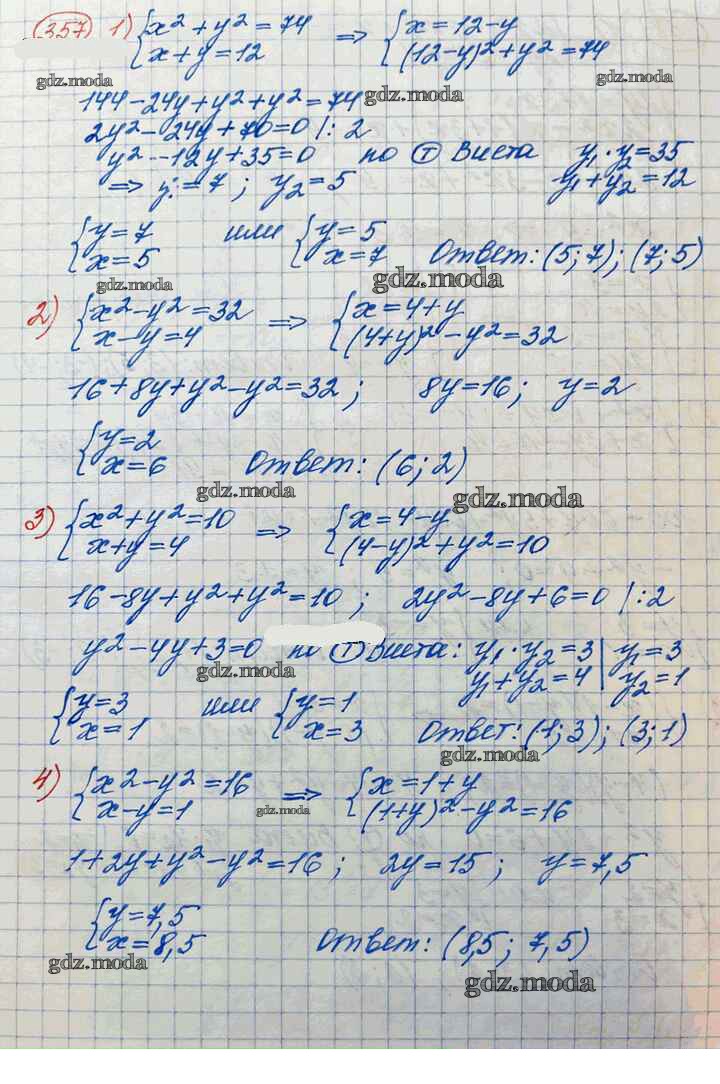 357) 1) { x² + y² = 74 => { x = 12 - y
x + y = 12 (12-y)² + y² = 74
gdz.moda gdz.moda gdz.moda
144 - 24y + y² + y² = 74
2y² - 24y + 70 = 0 | : 2
y² - 12y + 35 = 0 по Ⓣ Виета y₁ · y₂ = 35
=> y₁ = 7 ; y₂ = 5 y₁ + y₂ = 12
{ y = 7 или { y = 5
x = 5 x = 7 Ответ: (5; 7); (7; 5)
gdz.moda gdz.moda
2) { x² - y² = 32 => { x = 4 + y
x - y = 4 (4+y)² - y² = 32
16 + 8y + y² - y² = 32 ; 8y = 16 ; y = 2
{ y = 2
x = 6 Ответ: (6; 2)
gdz.moda gdz.moda
3) { x² + y² = 10 => { x = 4 - y
x + y = 4 (4-y)² + y² = 10
16 - 8y + y² + y² = 10 ; 2y² - 8y + 6 = 0 | : 2
y² - 4y + 3 = 0 по Ⓣ Виета: y₁ · y₂ = 3 | y₁ = 3
y₁ + y₂ = 4 | y₂ = 1
gdz.moda
{ y = 3 или { y = 1
x = 1 x = 3 Ответ: (1; 3); (3; 1)
gdz.moda
4) { x² - y² = 16 => { x = 1 + y
x - y = 1 (1+y)² - y² = 16
gdz.moda
1 + 2y + y² - y² = 16 ; 2y = 15 ; y = 7,5
{ y = 7,5
x = 8,5 Ответ: (8,5 ; 7,5)
gdz.moda gdz.moda